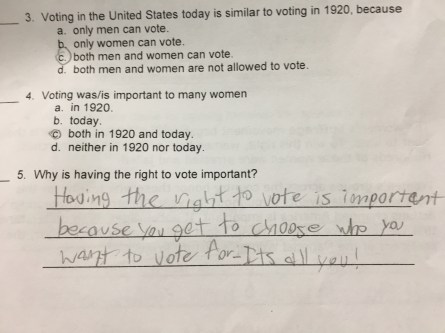 3. Voting in the United States today is similar to voting in 1920, because
a. only men can vote.
b. only women can vote.
c. both men and women can vote.
d. both men and women are not allowed to vote.
4. Voting was/is important to many women
a. in 1920.
b. today.
c both in 1920 and today.
d. neither in 1920 nor today.
5. Why is having the right to vote important?
Having the right to vote is important
because you get to choose who you
want to vote for-Its all you!